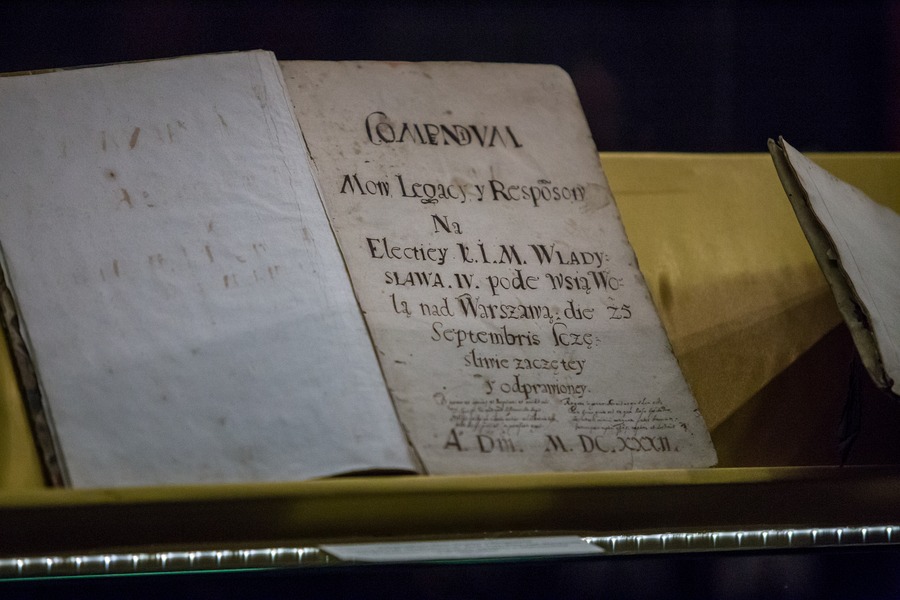 COMENDVM
Mow Legacy y Respōsow
Na
Electiey K.I.M. WŁADY:
SŁAWA. IV. pode wsią Wo=
lą nad Warszawą. die 25
Septembris szczę:
sliwie zaczętey
y odprawioney.
A. Dm. M. DC. XXXII.